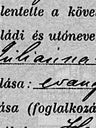 lentette a köve
ládi és utóneve
Juliánna
lása: evang
ása (foglalkozá